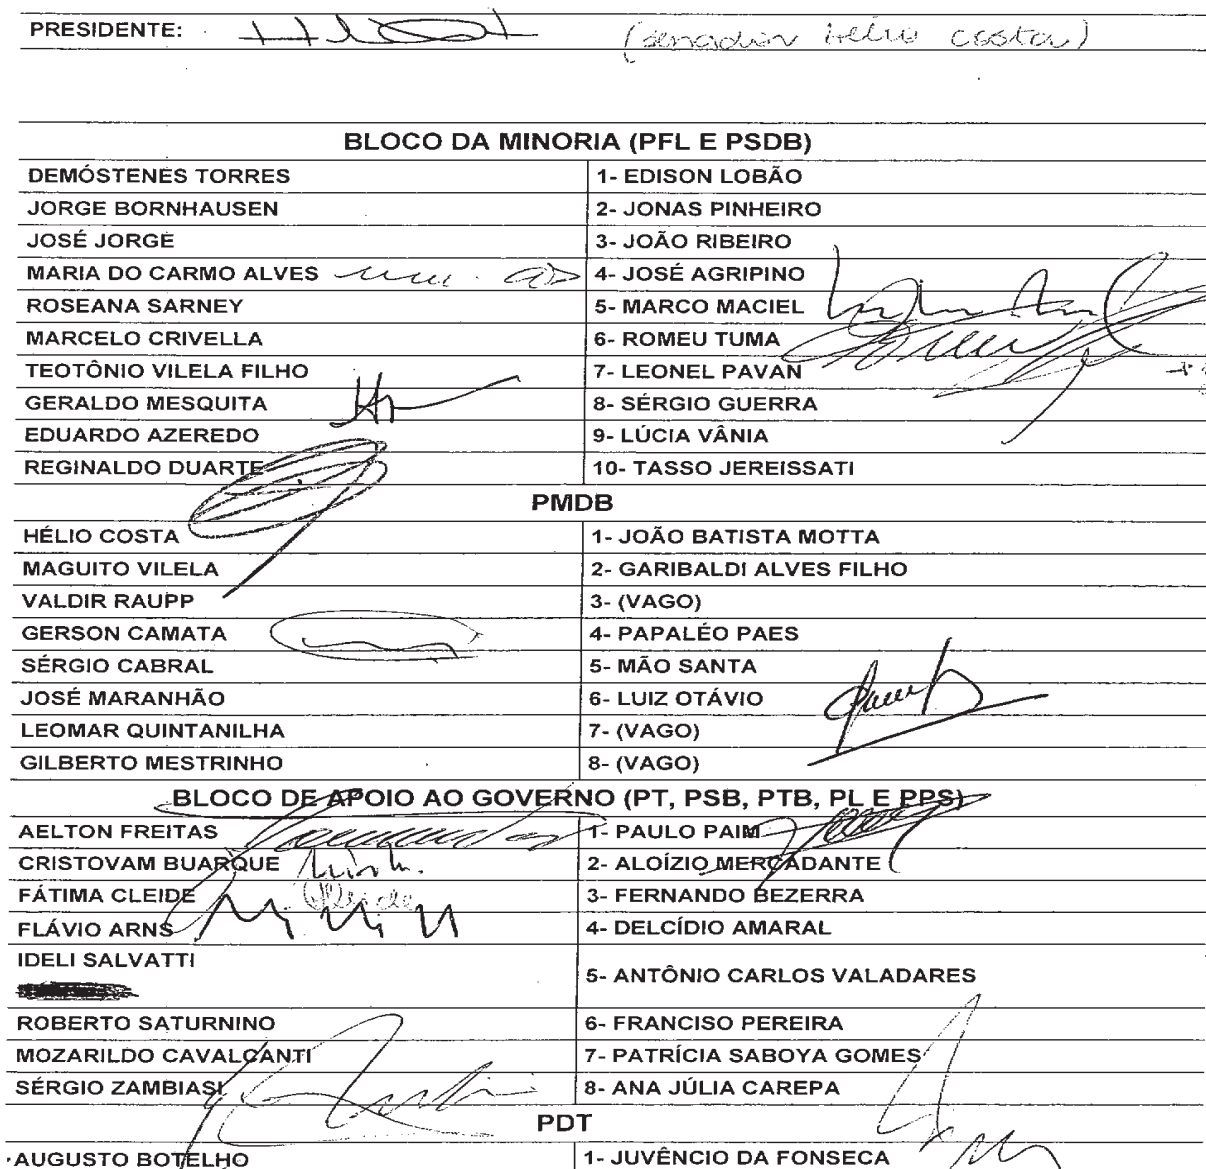 PRESIDENTE: (senador Hélio Costa)
BLOCO DA MINORIA (PFL E PSDB)
DEMÓSTENES TORRES 1- EDISON LOBÃO
JORGE BORNHAUSEN 2- JONAS PINHEIRO
JOSÉ JORGE 3- JOÃO RIBEIRO
MARIA DO CARMO ALVES 4- JOSÉ AGRIPINO
ROSEANA SARNEY 5- MARCO MACIEL
MARCELO CRIVELLA 6- ROMEU TUMA
TEOTÔNIO VILELA FILHO 7- LEONEL PAVAN
GERALDO MESQUITA 8- SÉRGIO GUERRA
EDUARDO AZEREDO 9- LÚCIA VÂNIA
REGINALDO DUARTE 10- TASSO JEREISSATI
PMDB
HÉLIO COSTA 1- JOÃO BATISTA MOTTA
MAGUITO VILELA 2- GARIBALDI ALVES FILHO
VALDIR RAUPP 3- (VAGO)
GERSON CAMATA 4- PAPALÉO PAES
SÉRGIO CABRAL 5- MÃO SANTA
JOSÉ MARANHÃO 6- LUIZ OTÁVIO
LEOMAR QUINTANILHA 7- (VAGO)
GILBERTO MESTRINHO 8- (VAGO)
BLOCO DE APOIO AO GOVERNO (PT, PSB, PTB, PL E PPS)
AELTON FREITAS 1- PAULO PAIM
CRISTOVAM BUARQUE 2- ALOÍZIO MERCADANTE
FÁTIMA CLEIDE 3- FERNANDO BEZERRA
FLÁVIO ARNS 4- DELCÍDIO AMARAL
IDELI SALVATTI 5- ANTÔNIO CARLOS VALADARES
ROBERTO SATURNINO 6- FRANCISO PEREIRA
MOZARILDO CAVALCANTI 7- PATRÍCIA SABOYA GOMES
SÉRGIO ZAMBIASI 8- ANA JÚLIA CAREPA
PDT
AUGUSTO BOTELHO 1- JUVÊNCIO DA FONSECA